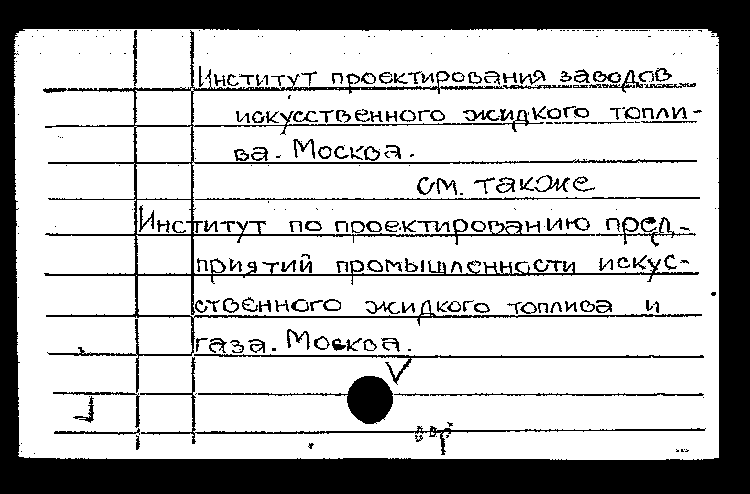 Институт проектирования заводов
искусственного жидкого топли-
ва. Москва.
см. также
Институт по проектированию пред-
приятий промышленности искус-
ственного жидкого топлива и
газа. Москва.